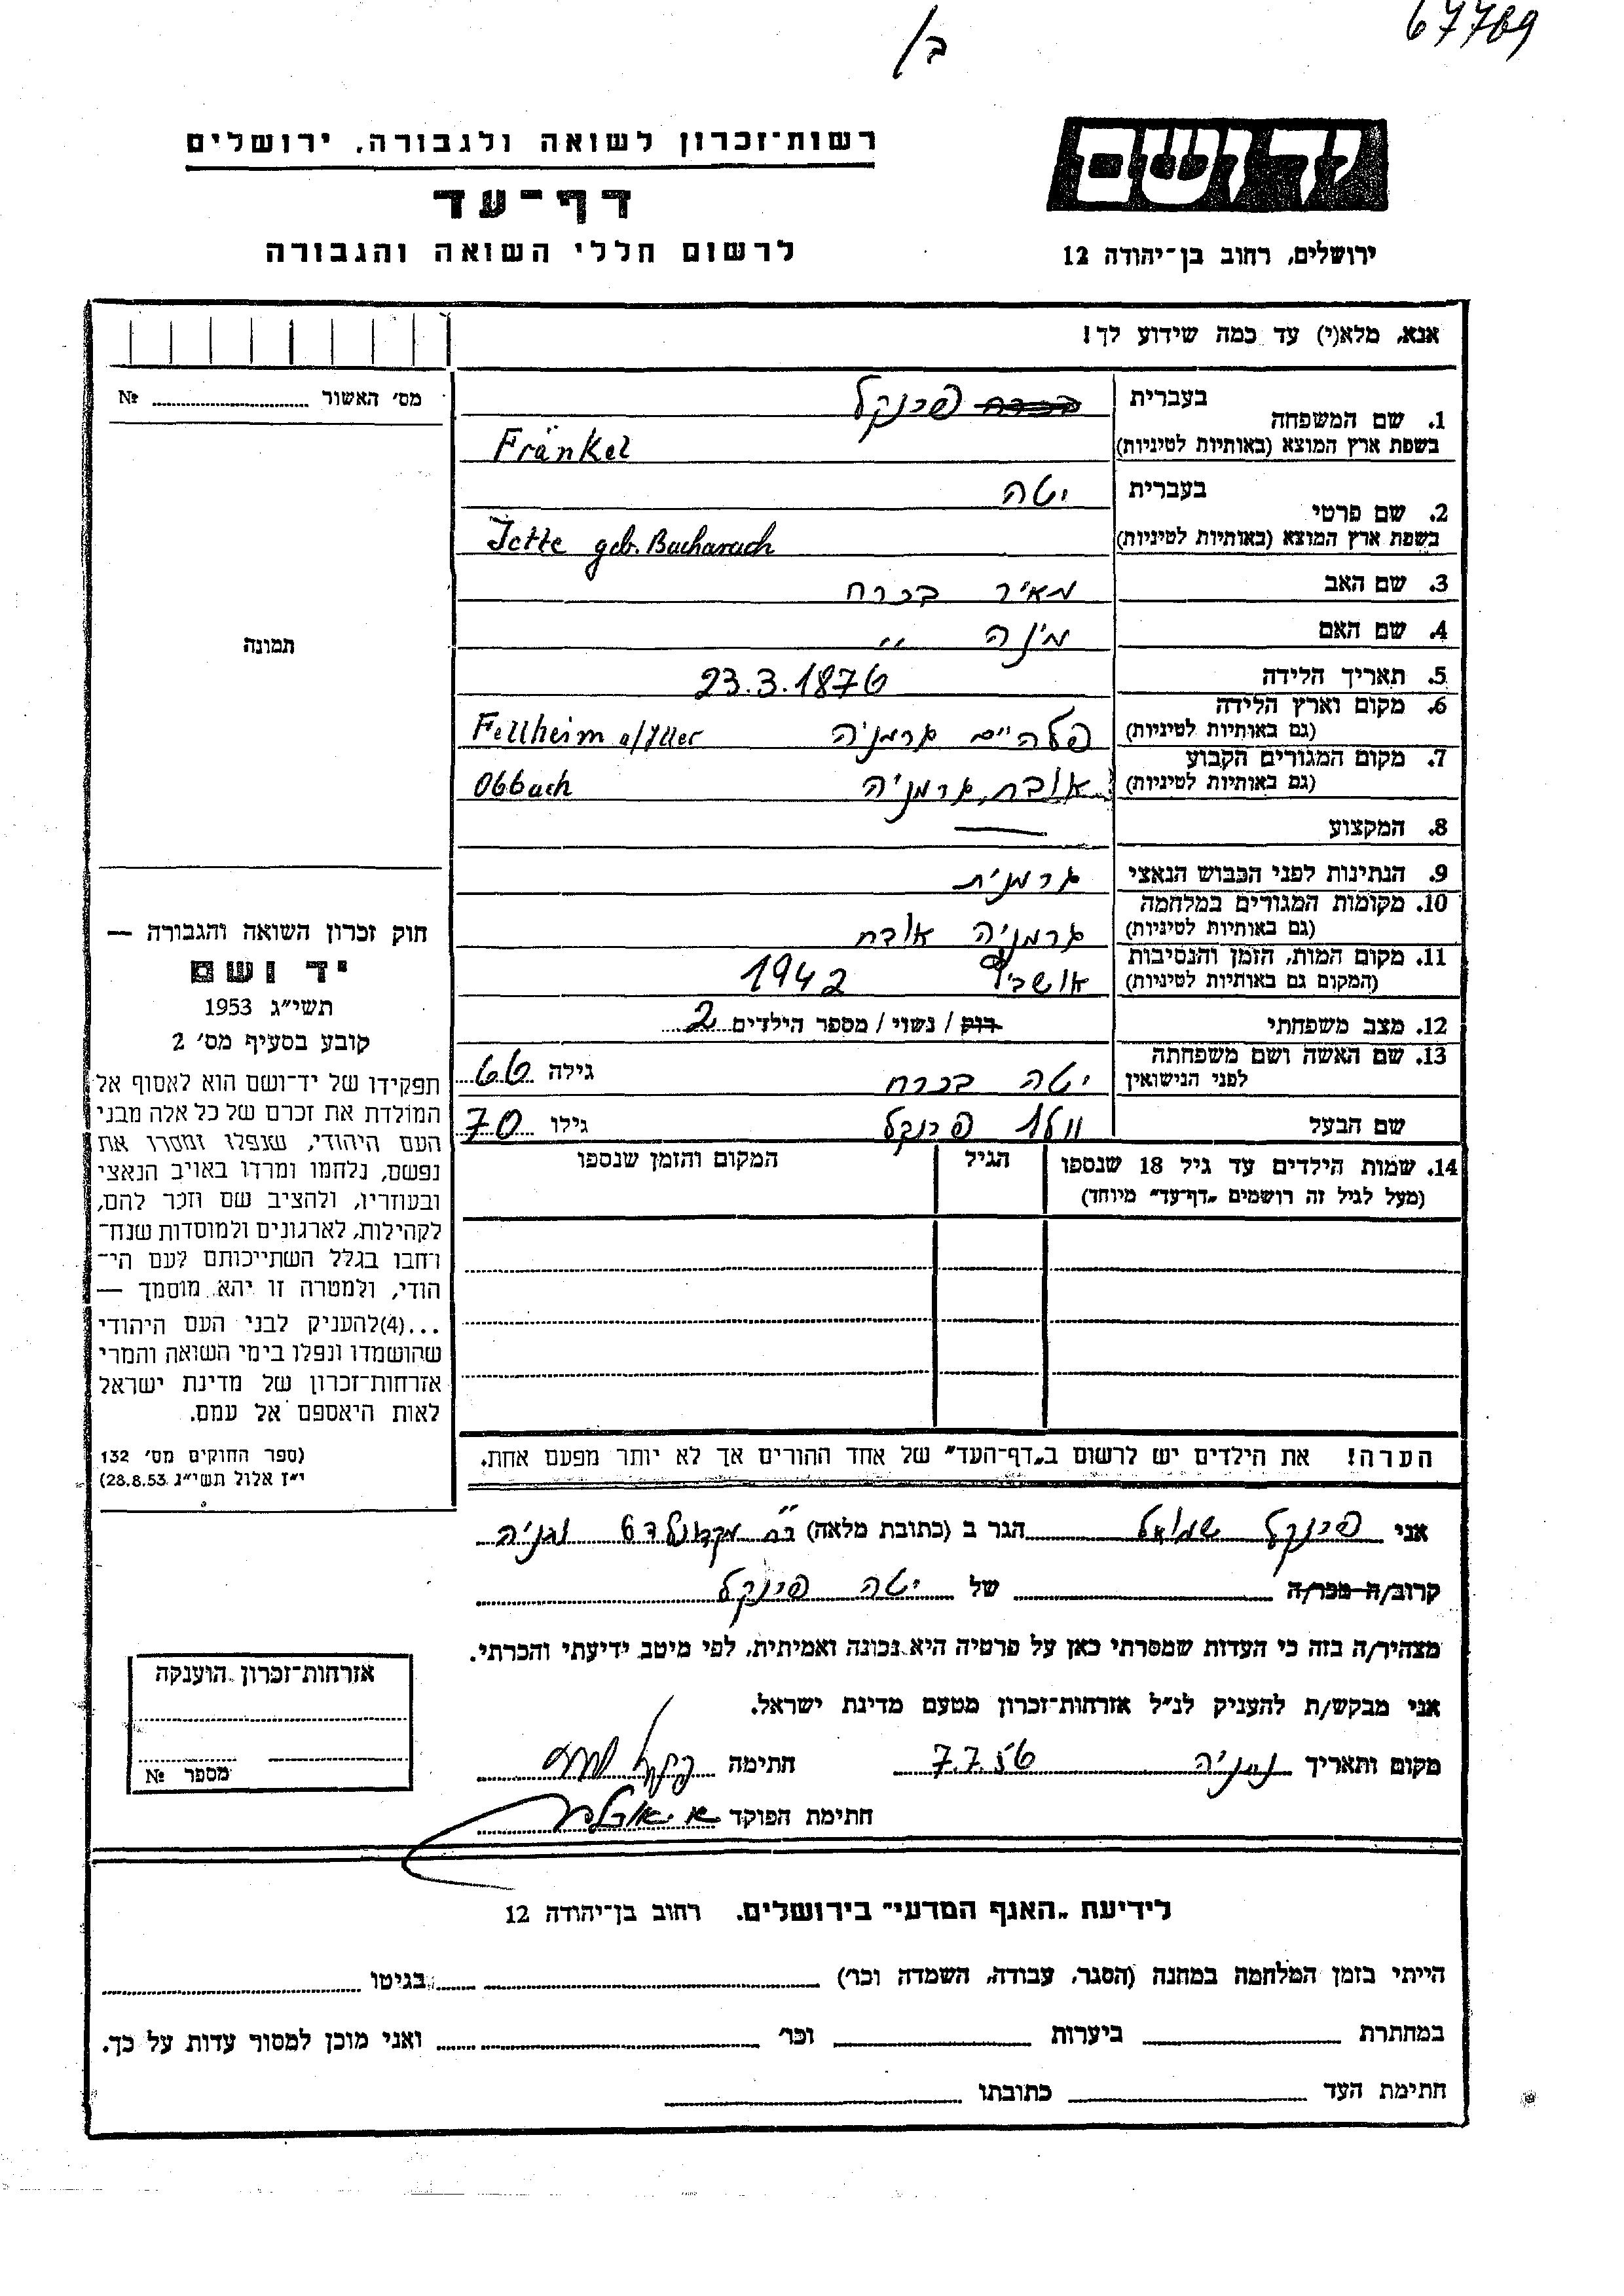 67789
ב/
יד ושם
ירושלים, רחוב בן־יהודה 12
רשות־זכרון לשואה ולגבורה, ירושלים
דף־עד
לרשום חללי השואה והגבורה
אנא, מלא(י) עד כמה שידוע לך!
מס' האשור № ........
תמונה
חוק זכרון השואה והגבורה —
יד ושם
תשי״ג 1953
קובע בסעיף מס' 2
תפקידו של יד־ושם הוא לאסוף אל
המולדת את זכרם של כל אלה מבני
העם היהודי, שנפלו ומסרו את
נפשם, נלחמו ומרדו באויב הנאצי
ובעוזריו, ולהציב שם וזכר להם,
לקהילות, לארגונים ולמוסדות שנח־
רבו בגלל השתייכותם לעם הי־
הודי, ולמטרה זו יהא מוסמך —
...(4)להעניק לבני העם היהודי
שהושמדו ונפלו בימי השואה והמרי
אזרחות־זכרון של מדינת ישראל
לאות היאספם אל עמם.
(ספר החוקים מס' 132
י״ז אלול תשי״ג 28.8.53)
1. שם המשפחה בעברית בכרח פרנקל
בשפת ארץ המוצא (באותיות לטיניות) Fränkel
2. שם פרטי בעברית יטה
בשפת ארץ המוצא (באותיות לטיניות) Jette geb. Bacharach
3. שם האב מאיר בכרח
4. שם האם מינה ״
5. תאריך הלידה 23.3.1876
6. מקום וארץ הלידה (גם באותיות לטיניות) פלהיים גרמניה Fellheim a/Iller
7. מקום המגורים הקבוע (גם באותיות לטיניות) אובך, גרמניה Obbach
8. המקצוע —
9. הנתינות לפני הכבוש הנאצי גרמנית
10. מקומות המגורים במלחמה (גם באותיות לטיניות) גרמניה אובך
11. מקום המות, הזמן והנסיבות (המקום גם באותיות לטיניות) אושביץ 1942
12. מצב משפחתי רוק / נשוי / מספר הילדים 2
13. שם האשה ושם משפחתה לפני הנישואין יטה בכרח גילה 66
שם הבעל וולו פרנקל גילו 70
14. שמות הילדים עד גיל 18 שנספו (מעל לגיל זה רושמים „דף־עד״ מיוחד) הגיל המקום והזמן שנספו
הערה! את הילדים יש לרשום ב„דף־העד״ של אחד ההורים אך לא יותר מפעם אחת.
אני פרנקל שמואל הגר ב (כתובת מלאה) רח' מקדונלד 6 נתניה
קרוב/ה מכר/ה של יטה פרנקל
מצהיר/ה בזה כי העדות שמסרתי כאן על פרטיה היא נכונה ואמיתית, לפי מיטב ידיעתי והכרתי.
אני מבקש/ת להעניק לנ״ל אזרחות־זכרון מטעם מדינת ישראל.
מקום ותאריך נתניה 7.7.56 חתימה
חתימת הפוקד
אזרחות־זכרון הוענקה
מספר №
לידיעת „האגף המדעי״ בירושלים, רחוב בן־יהודה 12
הייתי בזמן המלחמה במחנה (הסגר, עבודה, השמדה וכו') בגיטו
במחתרת ביערות וכו' ואני מוכן למסור עדות על כך.
חתימת העד כתובתו